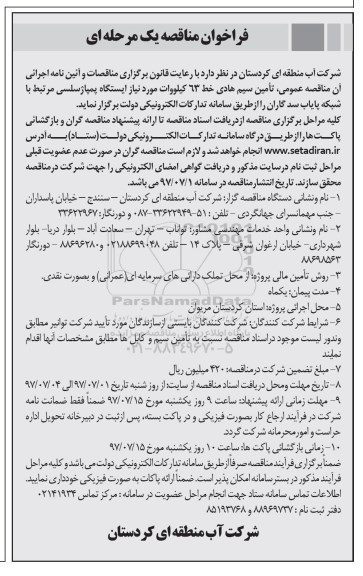 فراخوان مناقصه یک مرحله ای
شرکت آب منطقه ای کردستان در نظر دارد با رعایت قانون برگزاری مناقصات و آئین نامه اجرائی
آن مناقصه عمومی، تأمین سیم هادی خط ۶۳ کیلووات مورد نیاز ایستگاه پمپاژسلسی مرتبط با
شبکه پایاب سد گاران را ازطریق سامانه تدارکات الکترونیکی دولت برگزار نماید.
کلیه مراحل برگزاری مناقصه ازدریافت اسناد مناقصه تا ارائه پیشنهاد مناقصه گران و بازگشائی
پاکت ها را ازطریق درگاه سامانه تدارکات الکترونیکی دولت (ستاد) به آدرس
www.setadiran.ir انجام خواهد شد و لازم است مناقصه گران در صورت عدم عضویت قبلی
مراحل ثبت نام درسایت مذکور و دریافت گواهی امضای الکترونیکی را جهت شرکت درمناقصه
محقق سازند. تاریخ انتشار مناقصه در سامانه ۹۷/۰۷/۱ می باشد.
۱- نام ونشانی دستگاه مناقصه گزار: شرکت آب منطقه ای کردستان – سنندج – خیابان پاسداران
- جنب مهمانسرای جهانگردی - تلفن : ۵۱-۳۳۶۲۲۹۴۹-۰۸۷ و دورنگار: ۳۳۶۲۲۹۶۷
۲- نام ونشانی واحد خدمات مهندسی مشاور: تواناب – تهران – سعادت آباد – بلوار دریا- بلوار
شهرداری- خیابان ارغوان شرقی – پلاک ۱۴ – تلفن ۰۲۱۸۸۶۹۹۰۴۸ و ۸۸۶۹۶۲۸۰ - دورنگار
۸۸۶۹۸۵۶۳
۳- روش تأمین مالی پروژه: از محل تملک دارائی های سرمایه ای(عمرانی) و بصورت نقدی.
۴- مدت پیمان: یکماه
۵- محل اجرائی پروژه: استان کردستان مریوان
۶- شرایط شرکت کنندگان: شرکت کنندگان بایستی ازسازندگان مورد تأیید شرکت توانیر مطابق
وندور لیست موجود دراسناد مناقصه نسبت به تأمین سیم و کابل ها مطابق مشخصات آنها اقدام
نمایند
۷- مبلغ تضمین شرکت درمناقصه: ۴۲۰ میلیون ریال
۸- تاریخ مهلت ومحل دریافت اسناد مناقصه از سایت: از روز شنبه تاریخ ۹۷/۰۷/۰۱ الی ۹۷/۰۷/۰۴
۹- مهلت زمانی ارائه پیشنهاد: ساعت ۹ روز یکشنبه مورخ ۹۷/۰۷/۱۵ ضمناً فقط ضمانت نامه
شرکت در فرآیند ارجاع کار بصورت فیزیکی و در پاکت بسته، پس ازثبت در دبیرخانه تحویل اداره
حراست و امورمحرمانه شرکت گردد.
۱۰- زمانی بازگشائی پاکت ها: ساعت ۱۰ روز یکشنبه مورخ ۹۷/۰۷/۱۵
ضمناً برگزاری فرآیند مناقصه صرفاً ازطریق سامانه تدارکات الکترونیکی دولت می باشد و کلیه مراحل
فرآیند مذکور در بستر سامانه امکان پذیر است. ضمناً ارائه پاکات به صورت فیزیکی خودداری نمایید.
اطلاعات تماس سامانه ستاد جهت انجام مراحل عضویت در سامانه : مرکز تماس ۰۲۱۴۱۹۳۴
دفتر ثبت نام : ۸۸۹۶۹۷۳۷ و ۸۵۱۹۳۷۶۸
شرکت آب منطقه ای کردستان
ParsNamadData
۰۲۱-۸۸۳۴۹۶۷۰-۵